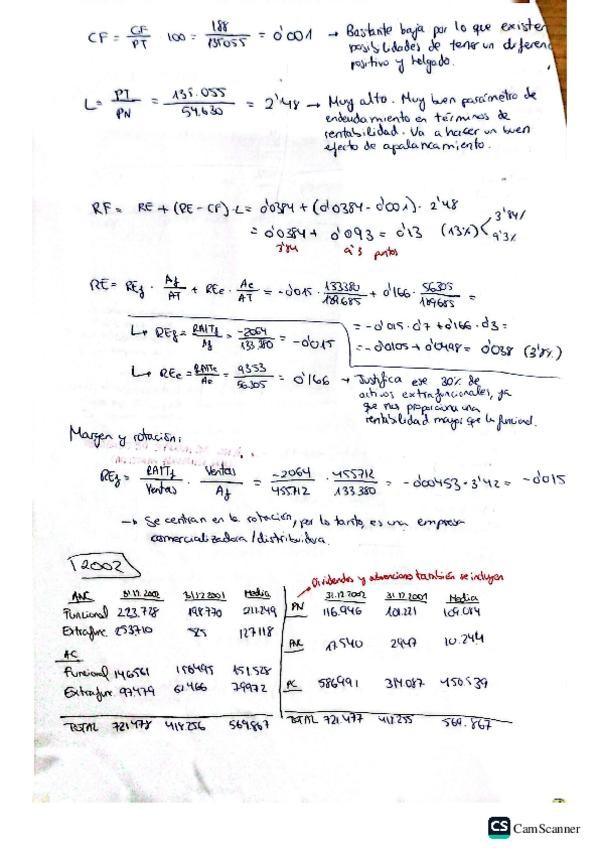 CF = CF/PT · 100 = 188/135055 = 0'001 → Bastante baja por lo que existen
posibilidades de tener un diferenc
positivo y holgado.
L = PT/PN = 135.055/54.630 = 2'48 → Muy alto. Muy buen parámetro de
endeudamiento en términos de
rentabilidad. Va a hacer un buen
efecto de apalancamiento.
RF = RE + (RE - CF) · L = 0'0384 + (0'0384 - 0'001) · 2'48
= 0'0384 + 0'093 = 0'13 (13%) < 3'84% 9'3%
3'84 9'3 puntos
RE = REf · Af/AT + REe · Ae/AT = -0'015 · 133380/189685 + 0'166 · 56305/189685 =
= -0'015 · 0'7 + 0'166 · 0'3 =
= -0'0105 + 0'0498 = 0'038 (3'8%)
↳ REf = RAITf/Af = -2064/133.380 = -0'015
↳ REe = RAITe/Ae = 9353/56305 = 0'166 → Justifica ese 30% de
activos extrafuncionales, ya
que nos proporciona una
rentabilidad mayor que la funcional.
Margen y rotación:
REf = RAITf/Ventas · Ventas/Af = -2064/455712 · 455712/133.380 = -0'00453 · 3'42 = -0'015
→ Se centran en la rotación, por lo tanto, es una empresa
comercializadora/distribuidora.
2002
Dividendos y subvenciones también se incluyen
ANC 31.12.2002 31.12.2001 Media 31.12.2002 31.12.2001 Media
Funcional 223.728 198.770 211.249 PN 116.946 101.221 109.084
Extrafunc. 253710 525 127118
PNC 17540 2947 10.244
AC
Funcional 146561 156495 151.528
Extrafunc. 97479 62466 79972 PC 586991 314.087 450539
TOTAL 721.478 418256 569.867 TOTAL 721.477 418255 569.867
CS CamScanner